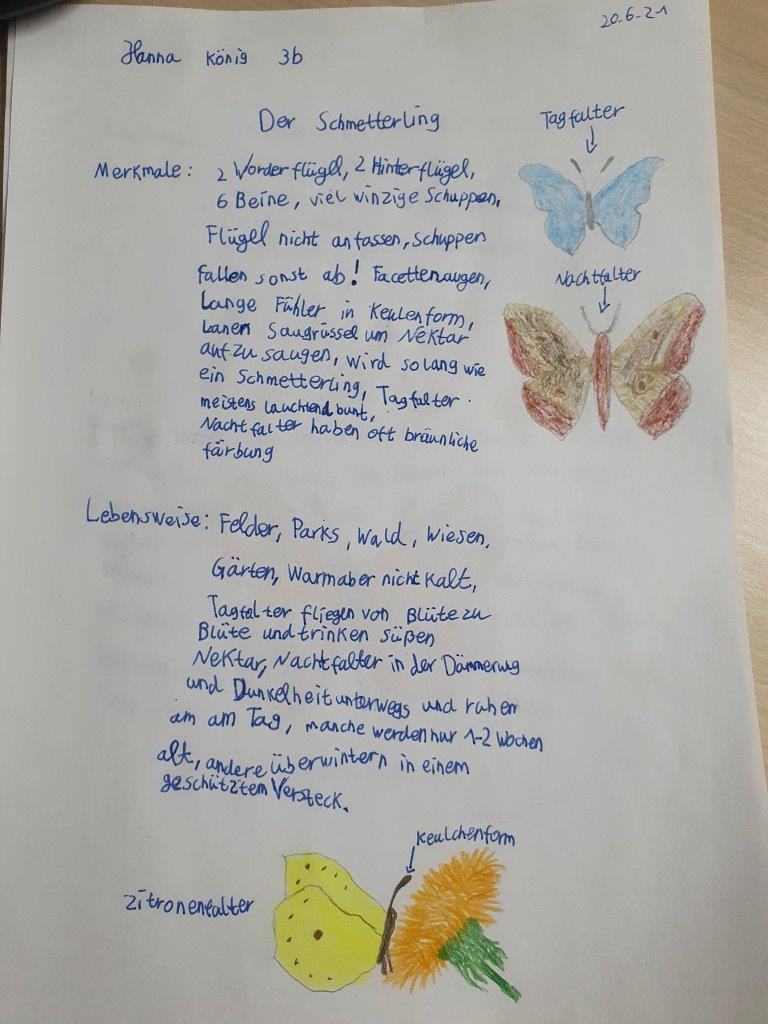 20.6.21
Hanna König 3b
Der Schmetterling
Tagfalter
Merkmale: 2 Vorderflügel, 2 Hinterflügel,
6 Beine, viel winzige Schuppen,
Flügel nicht anfassen, Schuppen
fallen sonst ab! Facettenaugen,
Nachtfalter
Lange Fühler in Keulenform,
Lanen Saugrüssel um Nektar
aufzusaugen, wird so lang wie
ein Schmetterling, Tagfalter
meistens lauchtend bunt,
Nachtfalter haben oft bräunliche
färbung
Lebensweise: Felder, Parks, Wald, Wiesen,
Gärten, Warm aber nicht Kalt,
Tagfalter fliegen von Blüte zu
Blüte und trinken süßen
Nektar, Nachtfalter in der Dämmerung
und Dunkelheit unterwegs und ruhen
am am Tag, manche werden nur 1-2 Wochen
alt, andere überwintern in einem
geschütztem Versteck.
Keulchenform
Zitronenfalter